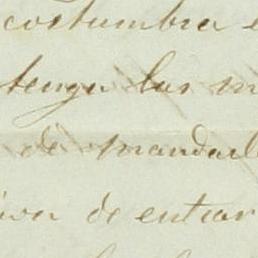 costumbra
tenga las
de mandarle
de entrar